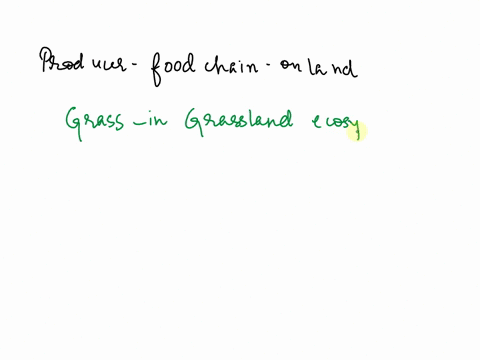 Producer - food chain - on land
Grass - in Grassland ecosy